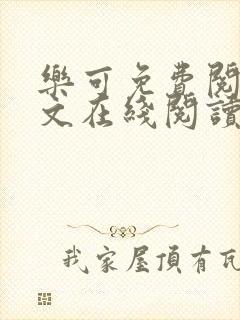 樂可免費閱
文在綫閱讀
我家屋頂有瓦